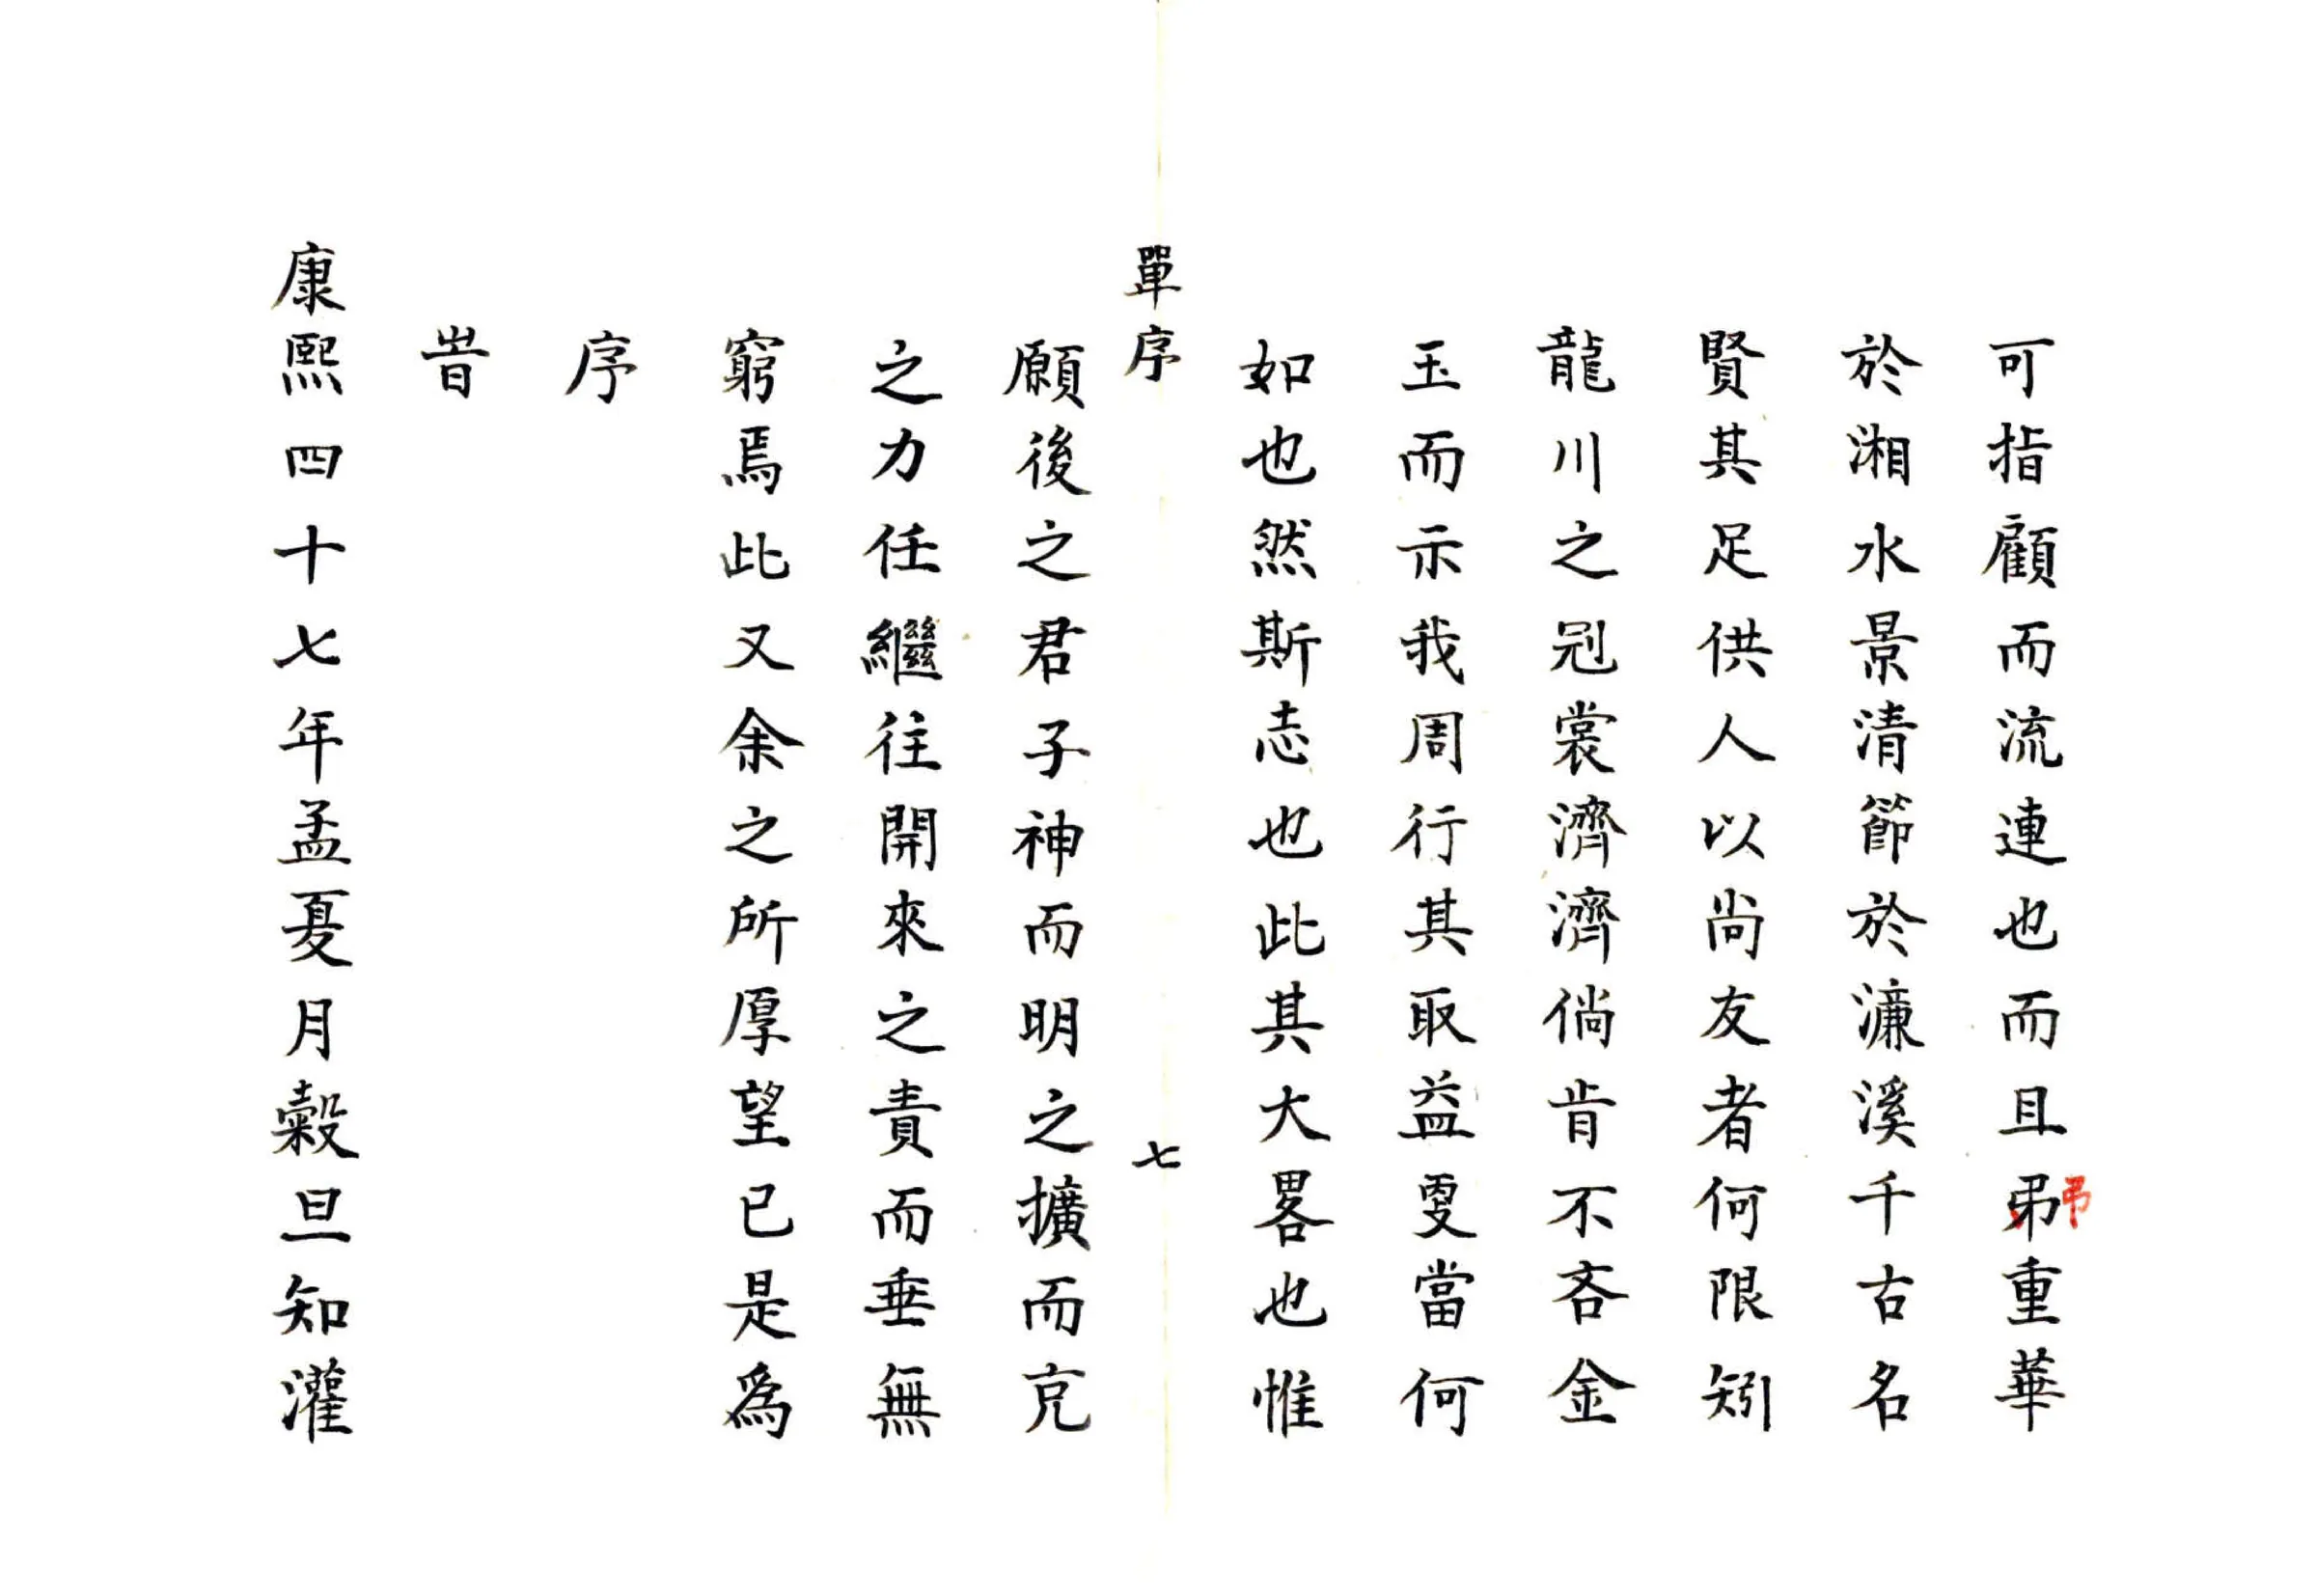 可指顧而流連也而且弔重華
弔
於湘水景清節於濂溪千古名
賢其足供人以尚友者何限矧
龍川之冠裳濟濟倘肯不吝金
玉而示我周行其取益更當何
如也然斯志也此其大畧也惟
單序 七
願後之君子神而明之擴而充
之力任繼往開來之責而垂無
窮焉此又余之所厚望已是為
序
旹
康熙四十七年孟夏月穀旦知灌